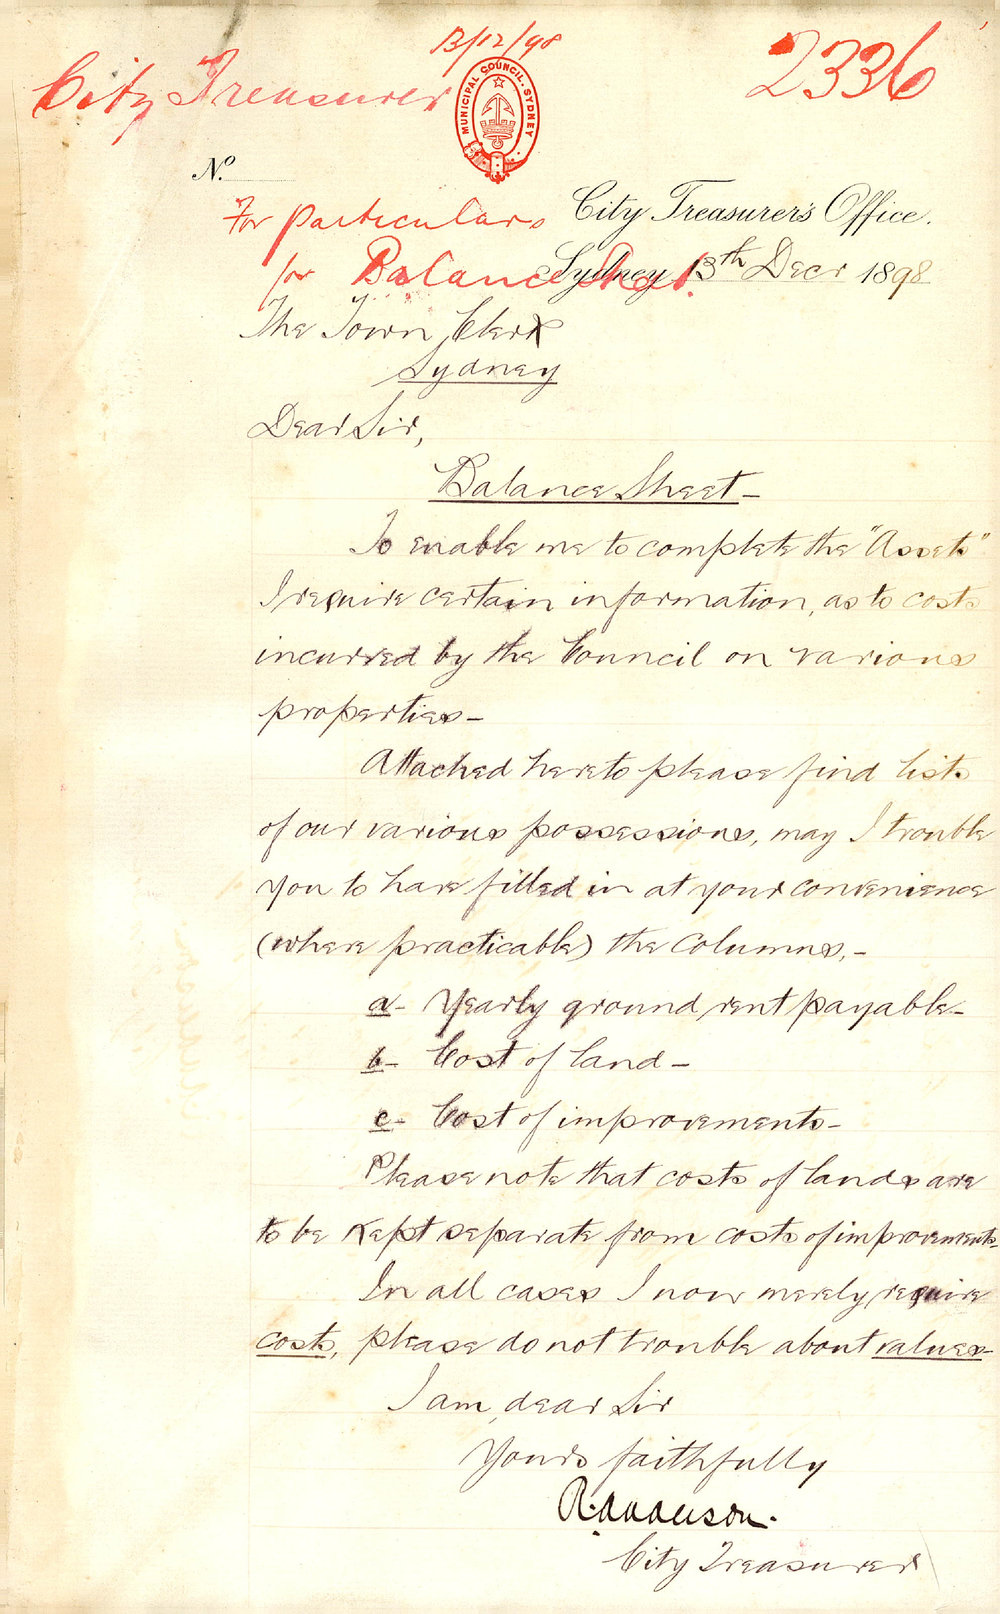 13/12/98
City Treasurer
2336
MUNICIPAL COUNCIL. SYDNEY
No.
For particulars
City Treasurer's Office.
for Balance Sheet.
Sydney 13th Decr 1898
The Town Clerk
Sydney
Dear Sir,
Balance Sheet—
To enable me to complete the "Assets"
I require certain information, as to costs
incurred by the Council on various
properties—
Attached hereto please find lists
of our various possessions, may I trouble
you to have filled in at your convenience
(where practicable) the columns,—
a— Yearly ground rent payable—
b— Cost of land—
c— Cost of improvements—
Please note that costs of lands are
to be kept separate from costs of improvements—
In all cases I now merely require
costs, please do not trouble about values—
I am, dear Sir
Yours faithfully
City Treasurer